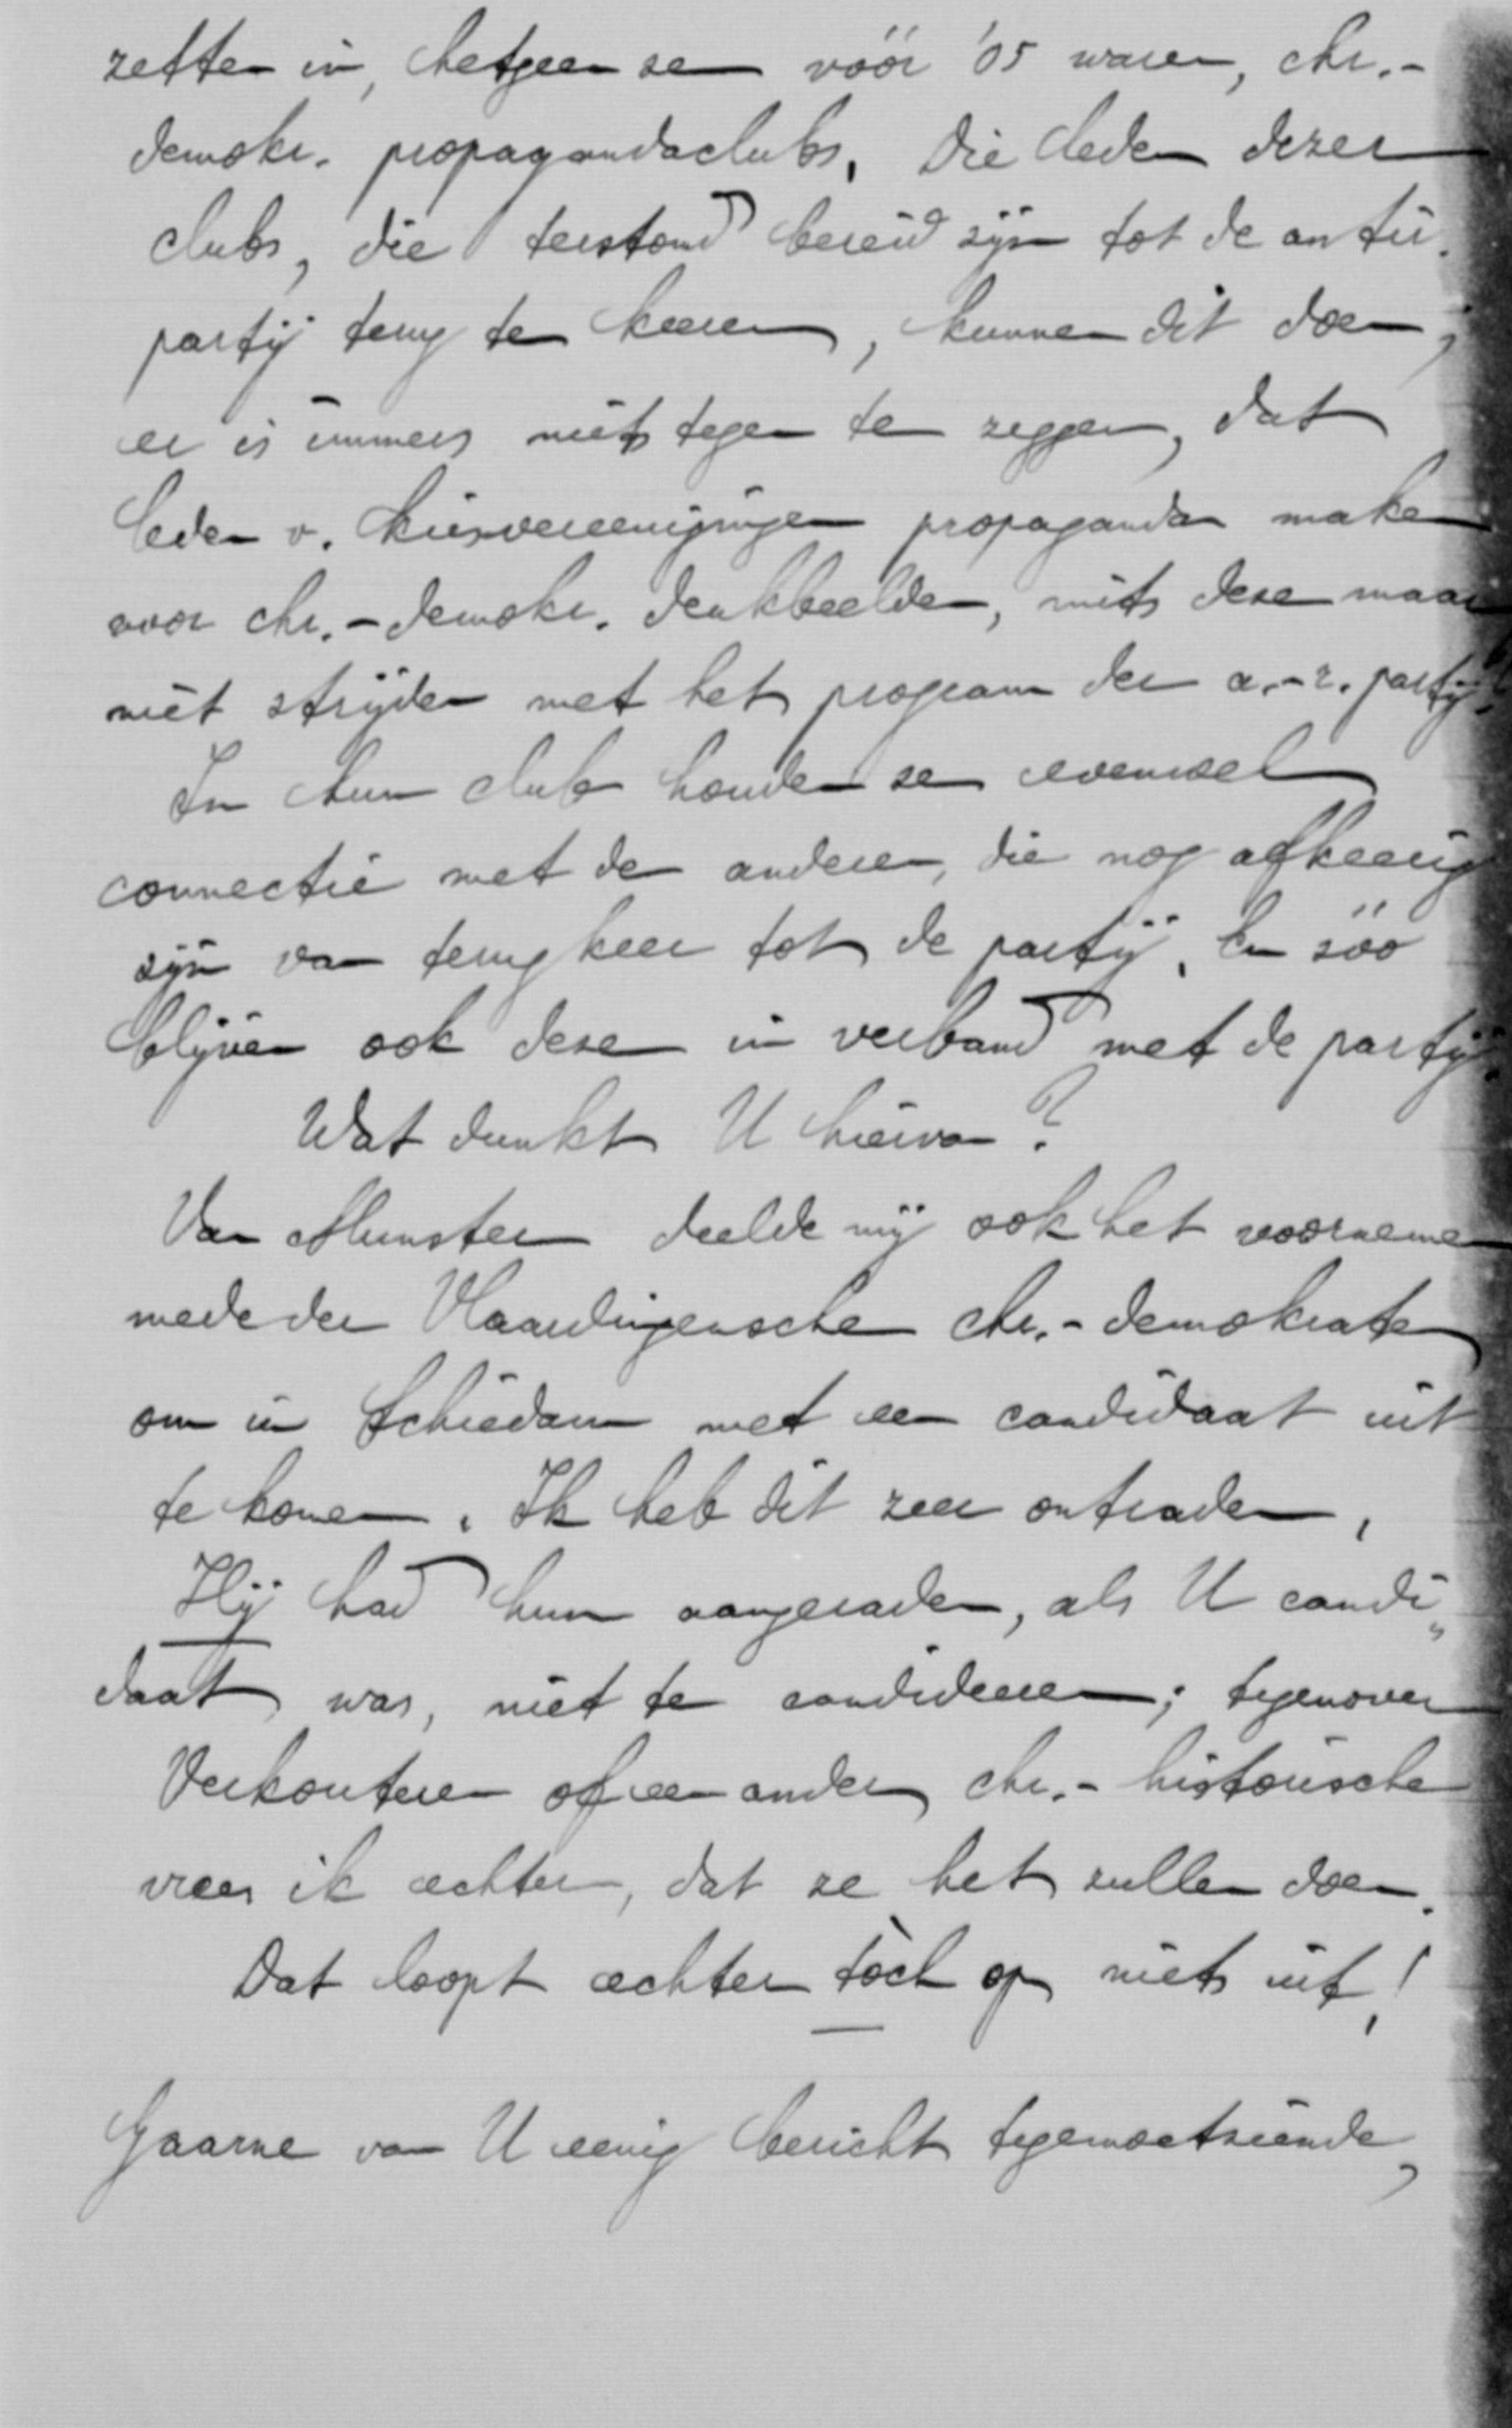 zetten in, hetgeen ze vóór '05 waren, chr.-
demokr. propagandaclubs. Die leden dezer
clubs, die terstond bereid zijn tot de antir.
partij terug te keeren, kunnen dit doen;
er is immers niets tegen te zeggen, dat
leden v. kiesvereenigingen propaganda maken
voor chr.-demokr. denkbeelden, mits deze maar
niet strijden met het program der a.-r. partij.
In hun club houden ze evenwel
connectie met de anderen, die nog afkeerig
zijn van terugkeer tot de partij. En zóó
blijven ook deze in verband met de partij.
Wat dunkt U hiervan?
Van Munster deelde mij ook het voornemen
mede der Vlaardingensche chr.-demokraten
om in Schiedam met een candidaat uit
te komen. Ik heb dit zeer ontraden.
Hij had hun aangeraden, als U candi„
daat was, niet te candideeren; tegenover
Verkouteren of een ander chr.-historische
vrees ik echter, dat ze het zullen doen.
Dat loopt echter tòch op niets uit!
Gaarne van U eenig bericht tegemoetziende,